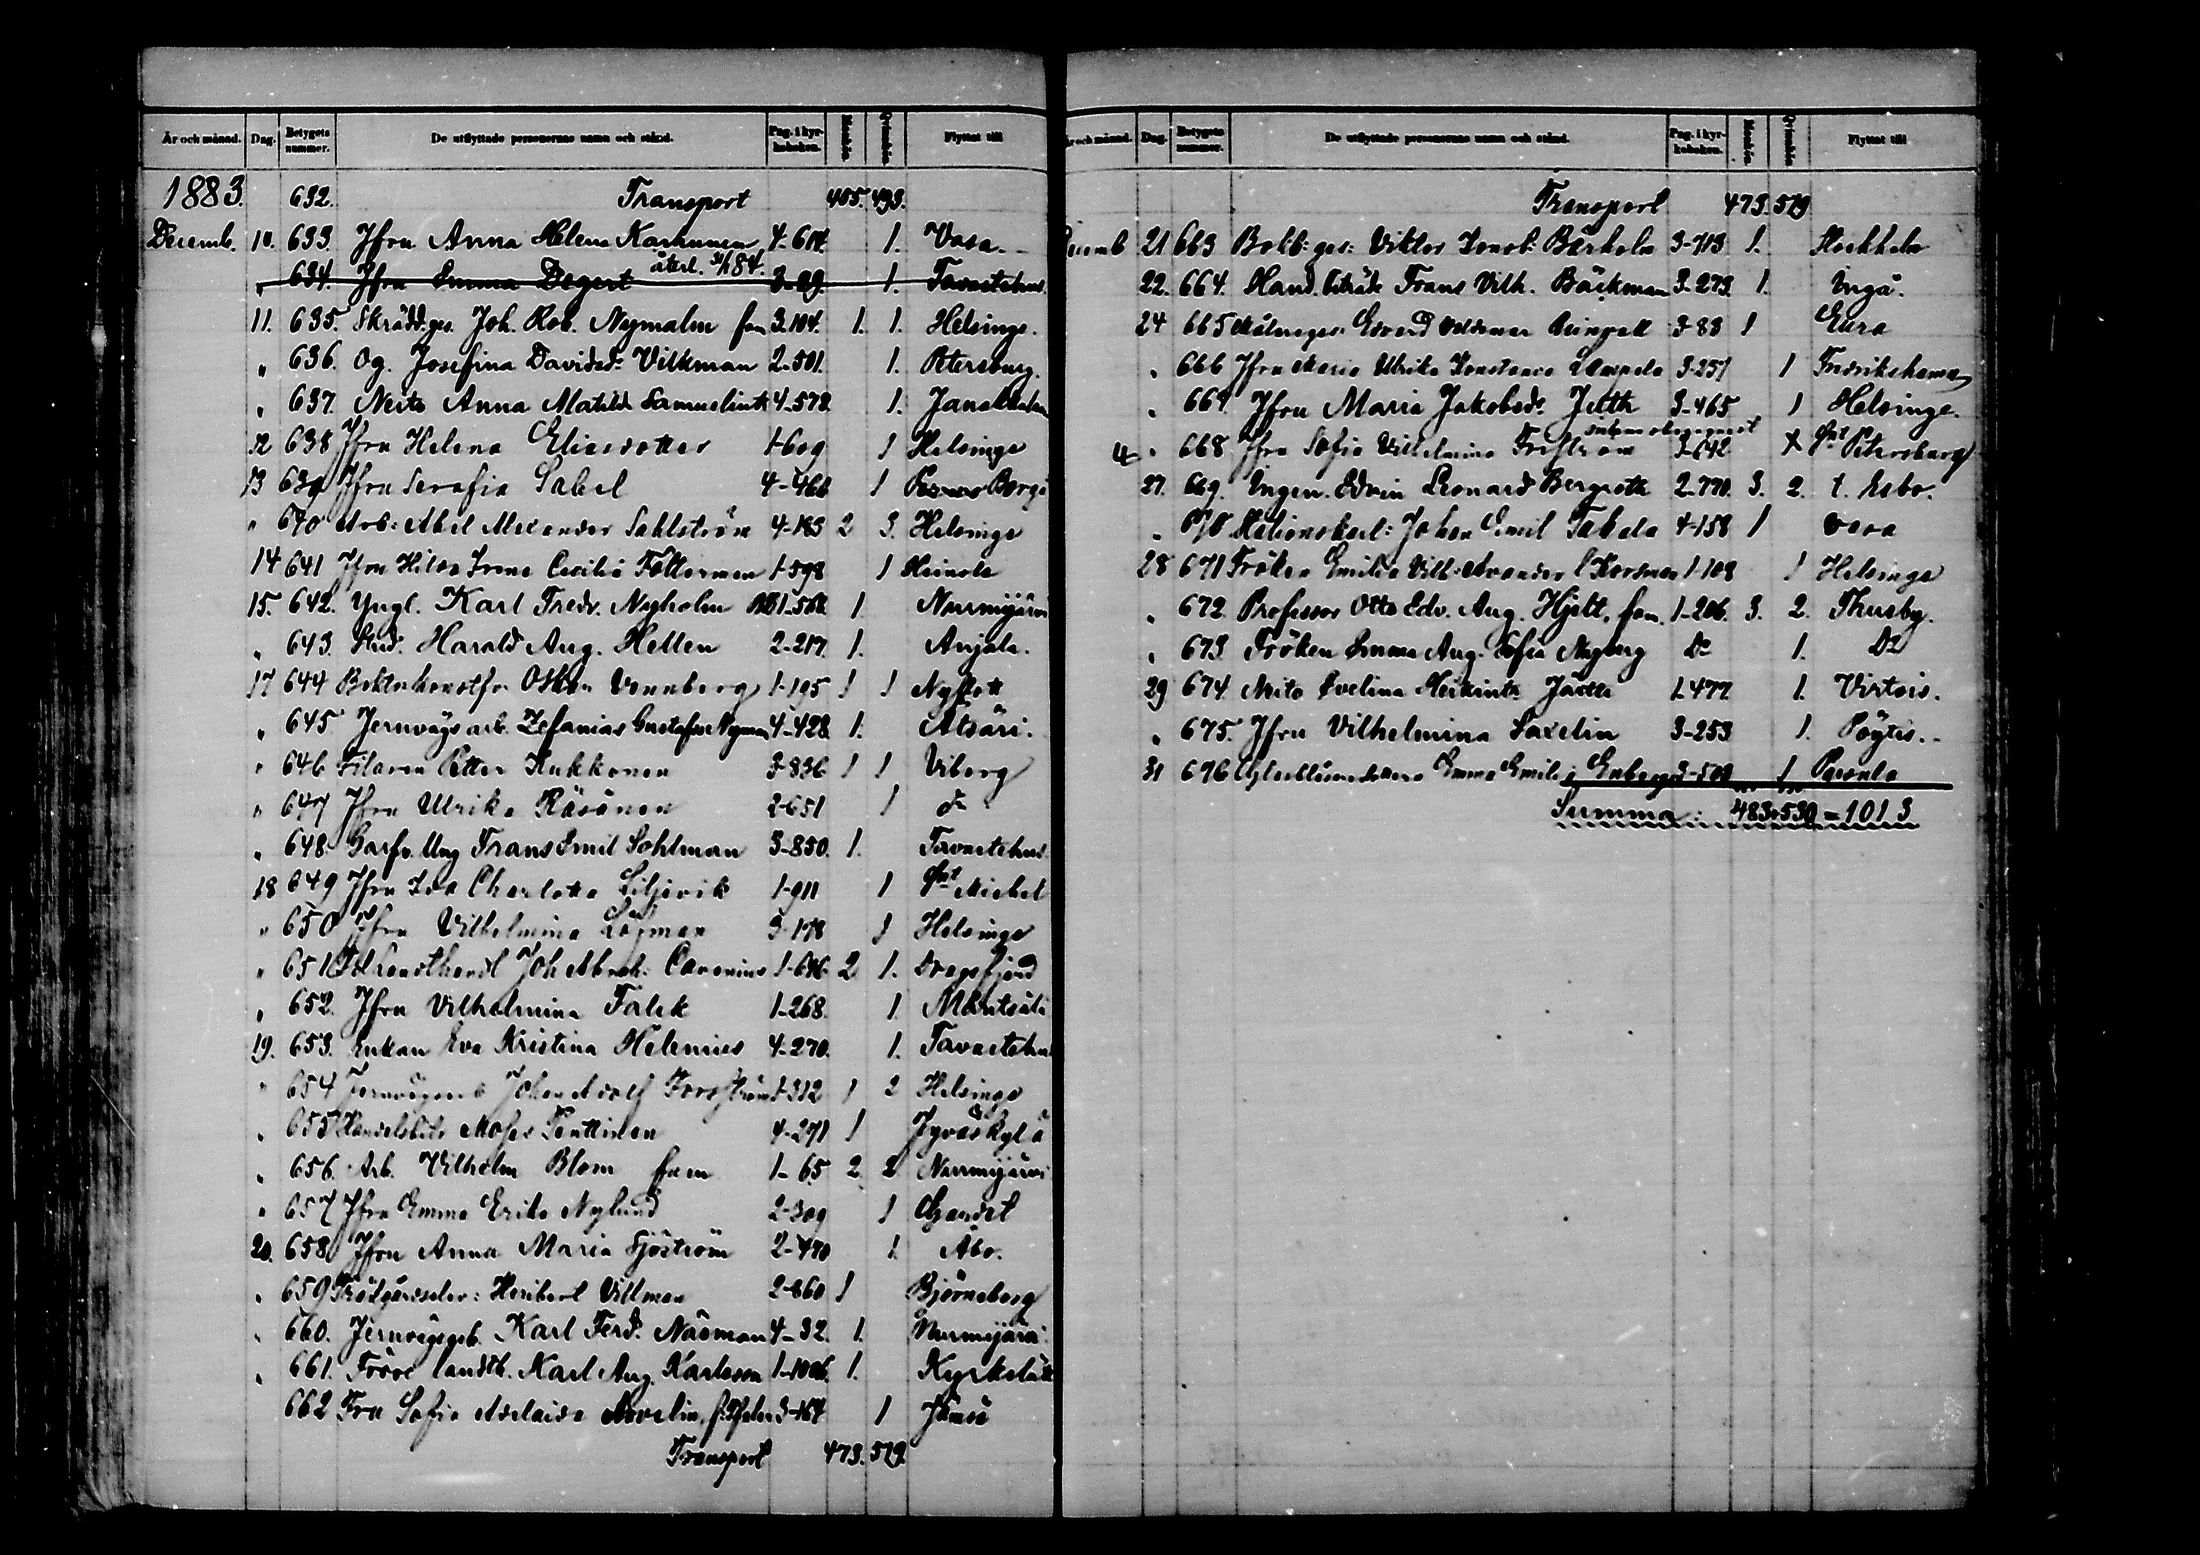 År och månad. Dag. Betygets nummer. De utflyttade personernas namn och stånd. Pag. i kyrkoboken. Mankön. Qvinkön. Flyttat till
1883. 632. Transport 455. 493.
Decemb. 10. 633. Jfru Anna Helena Karhunen 4-614. 1. Vasa.
återl. 31/1 84.
" 634. Jfru Emma Degert 3-89. 1. Tavastehus
11. 635. Skrädd.ges. Joh. Rob. Nymalm fam 3-104. 1. 1. Helsinge.
" 636. Og. Josefina Davidsdr Vilkman 2-501. 1. Petersburg.
" 637. Neito Anna Matilda Samuelintr 4-578. 1. Janakkala
12 638 Jfru Helena Eliasdotter 1-609 1 Helsinge
13 639 Jfru Serafia Sabel 4-466 1 Borgå
" 640 Arb: Abel Alexander Sahlström 4-185 2 3. Helsinge
14 641 Jfru Hilda Irene Cecilia Fölterman 1-598 1 Heinola
15. 642. Yngl. Karl Fredr. Nyholm 1-568. 1. Nurmijärvi
" 643. Stud. Harald Aug. Hellen 2-217. 1. Anjala.
17 644 Oskar Vennberg 1-195 1 1 Nyslott
" 645 Jernvägsarb. Zefanias Gustafsson Nyman 4-428. 1. Atsäri.
" 646 Filaren Petter Kukkonen 3-836 1 1 Viborg
" 647 Jfru Ulrika Räsänen 2-651 1 do
" 648. Garfv. Ung Frans Emil Sohlman 3-850. 1. Tavastehus
18 649 Jfru Ida Charlotta Liljevik 1-911 1 Snt Michel
" 650 Jfru Vilhelmina Löfman 3-178 1 Helsinge
" 651 Joh Abrah: Cavenius 1-696. 2 1. Dragsfjerd
" 652. Jfru Vilhelmina Falck 1-268. 1. Mäntsälä
19. 653. Enkan Eva Kristina Helenius 4-270. 1. Tavastehus
" 654 Jernvägsarb Johan Adolf Forsström 1-312 1 2 Helsinge
" 655 Handelsbitr Moses Penttinen 4-271 1 Jyväskylä
" 656. Arb. Vilhelm Blom fam 1-65 2. 2 Nurmijärvi
" 657 Jfru Emma Erika Nylund 2-309 1
20. 658. Jfru Anna Maria Sjöström 2-470 1. Åbo.
" 659 Trädgårdselev: Heribert Villman 2-860 1 Björneborg
" 660. Jernvägsgeb. Karl Ferd. Näsman 4-32. 1. Nurmijärvi
" 661. Karl Aug. Karlsson 1-1006. 1. Kyrkslätt
662 Fru Sofia Adelaide 3-164 1 Jämsä
Transport 473. 519.
År och månad. Dag. Betygets nummer. De utflyttade personernas namn och stånd. Pag. i kyrkoboken. Mankön. Qvinkön. Flyttat till
Transport 473. 519
Decemb 21 663 Bokb: ges: Viktor Bärholm 3-713 1. Stockholm
22. 664. Hand. biträde Frans Vilh. Bäckman 3-273. 1. Ingå.
24 665 Målareges. Edvard Valdemar 3-88 1 Eura
" 666 Jfru Maria Ulrika Konstance Lampela 3-257 1 Fredrikshamn
" 667. Jfru Maria Jakobsdr 3-465 1 Helsinge.
" 668. Jfru Sofia Vilhelmina 3-642 Snt Petersburg
27. 669. Ingen. Edvin Leonard Bergroth 2-770. 3. 2. t. Esbo.
" 670 Stationskarl: Johan Emil Tabela 4-158 1 Vasa
28 671 Fröken Emilia Vilh: 1-108 1 Helsinge
" 672. Professor Otto Edv. Aug. Hjelt, fam. 1-206. 3. 2. Thusby.
" 673. Fröken Emma Aug. Sofia Nyberg Do 1. Do
29 674. Neito Evelina Heikintr 1-477 1. Virtois.
" 675. Jfru Vilhelmina Saxelin 3-253 1. Pöytis.
31 676 Emma Emilia Enberg 3-509 1
Summa: 483+530=1013